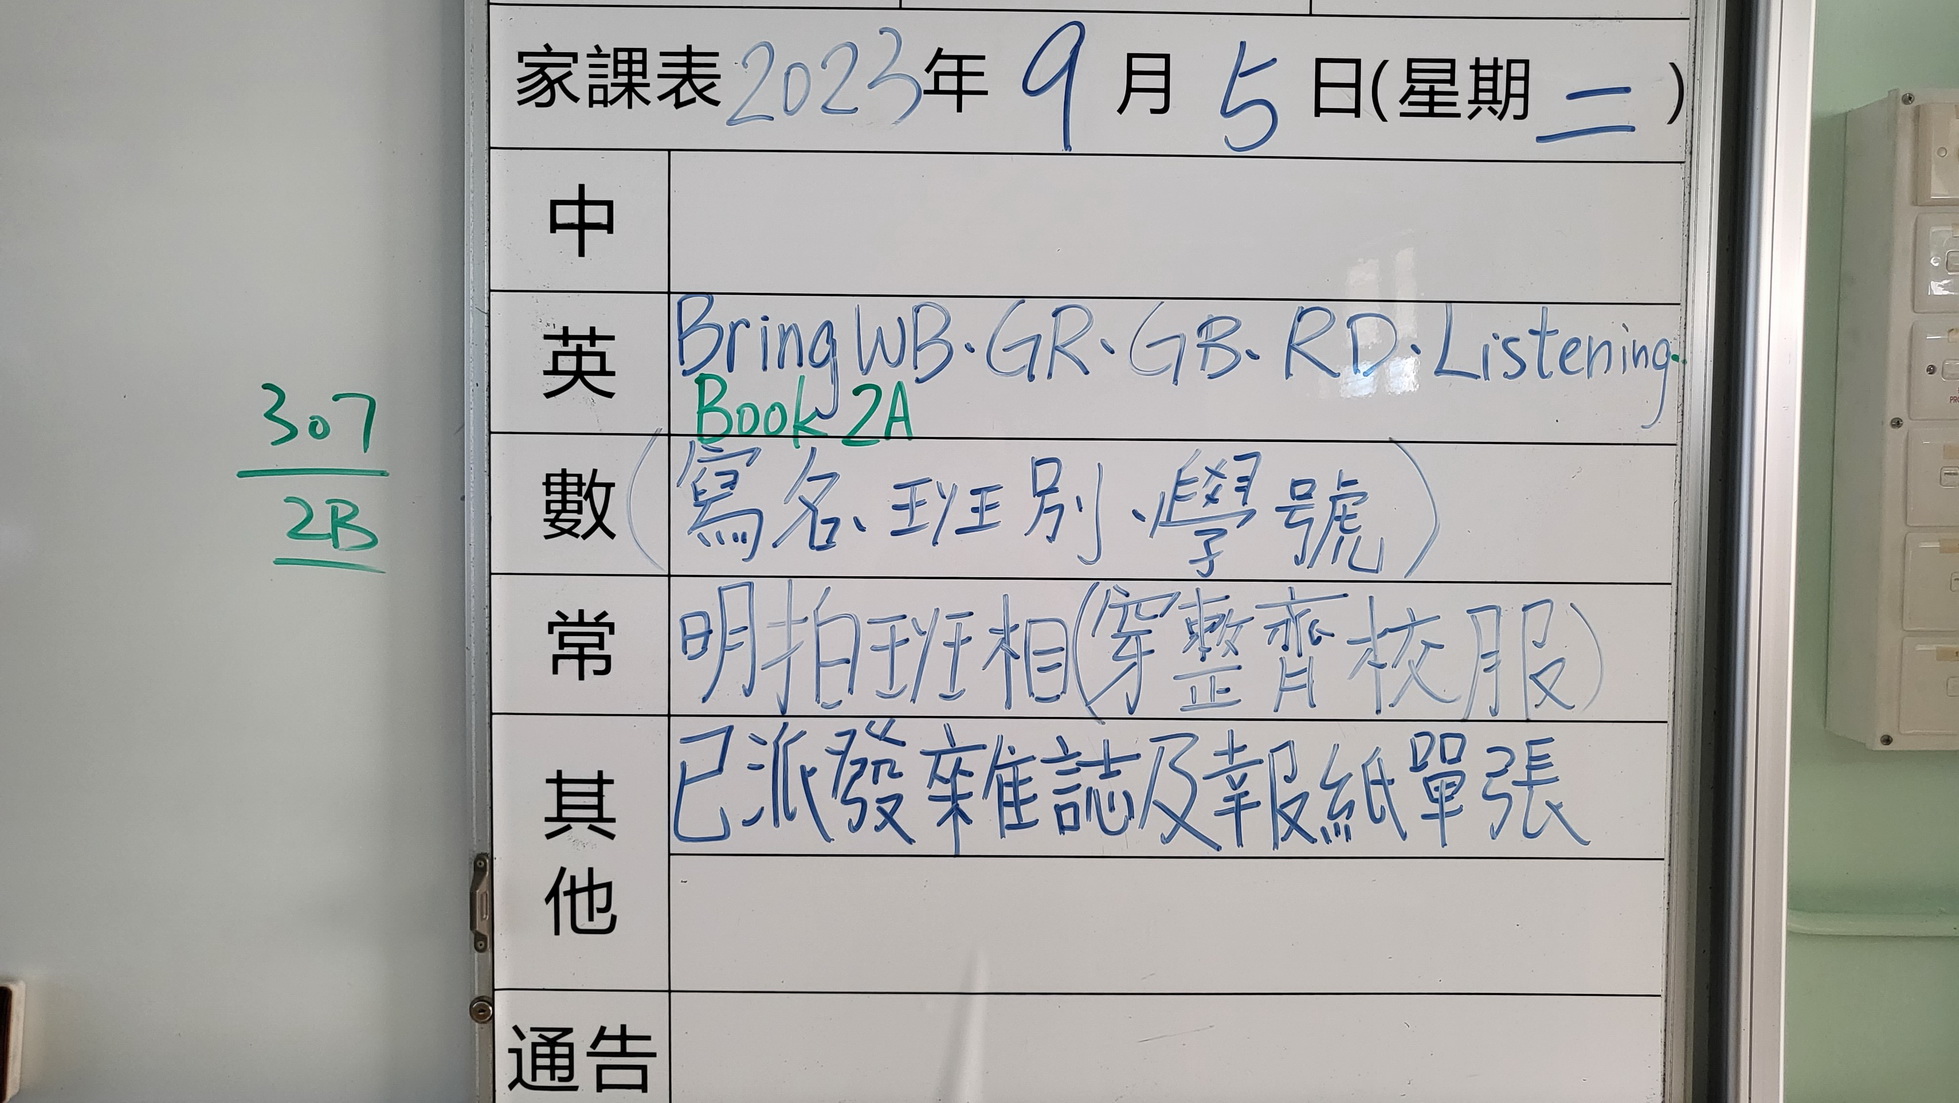 家課表2023年9月5日(星期二)
中
英 Bring WB、GR、GB、RD、Listening、
Book 2A
數 (寫名、班別、學號)
常 明拍班相(穿整齊校服)
其他 已派發雜誌及報紙單張
通告
307
2B